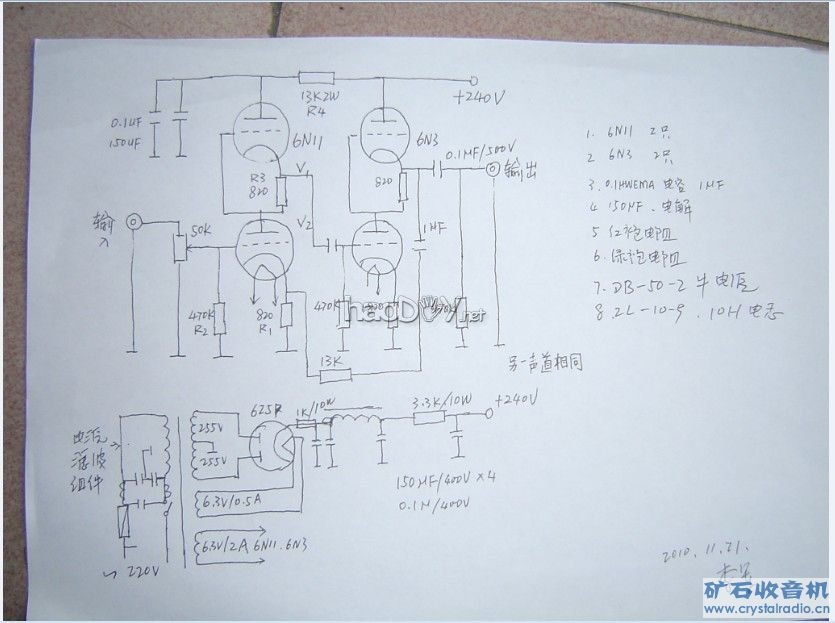 13K2W
R4
+240V
0.1UF
150UF
6N11
6N3
0.1MF/500V
输出
R3
820
V1
820
输
入
50K
V2
1MF
470K
R2
820
R1
470K
haoDIY.net
13K
另一声道相同
1. 6N11 2只
2 6N3 2只
3. 0.1MWEMA 电容 1MF
4 150MF. 电解
5 红袍电阻
6. 绿袍电阻
7. DB-50-2 牛电源
8. ZL-10-9. 10H 电感
电源
滤波
组件
255V
255V
6Z5P
1K/10W
3.3K/10W
+240V
6.3V/0.5A
150MF/400V×4
0.1M/400V
6.3V/2A 6N11.6N3
~ 220V
2010.11.21.
矿石收音机
www.crystalradio.cn